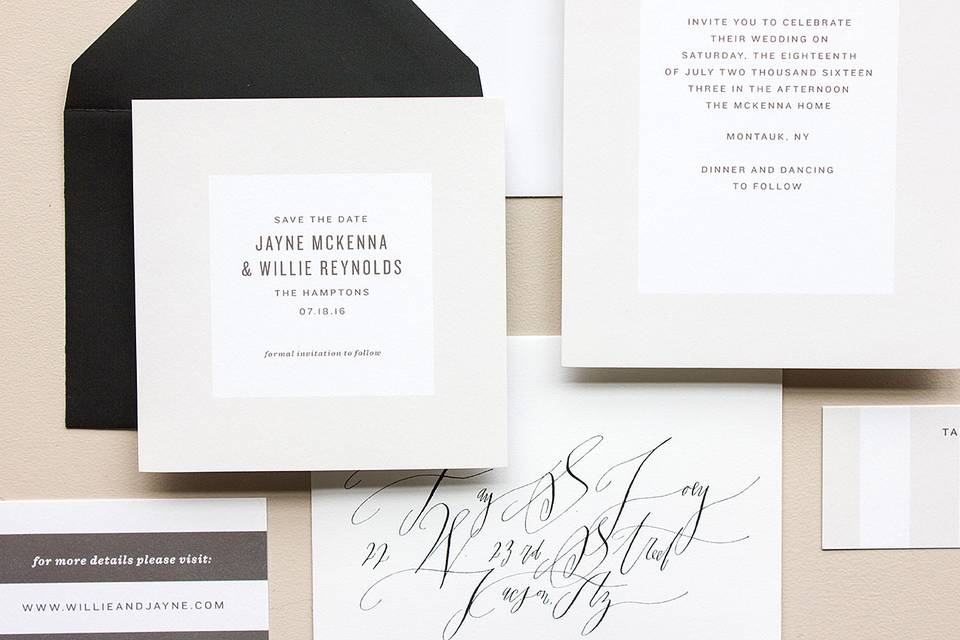 SAVE THE DATE
JAYNE MCKENNA
& WILLIE REYNOLDS
THE HAMPTONS
07.18.16
formal invitation to follow
INVITE YOU TO CELEBRATE
THEIR WEDDING ON
SATURDAY, THE EIGHTEENTH
OF JULY TWO THOUSAND SIXTEEN
THREE IN THE AFTERNOON
THE MCKENNA HOME
MONTAUK, NY
DINNER AND DANCING
TO FOLLOW
TA
22 W. 23rd Street
for more details please visit:
WWW.WILLIEANDJAYNE.COM